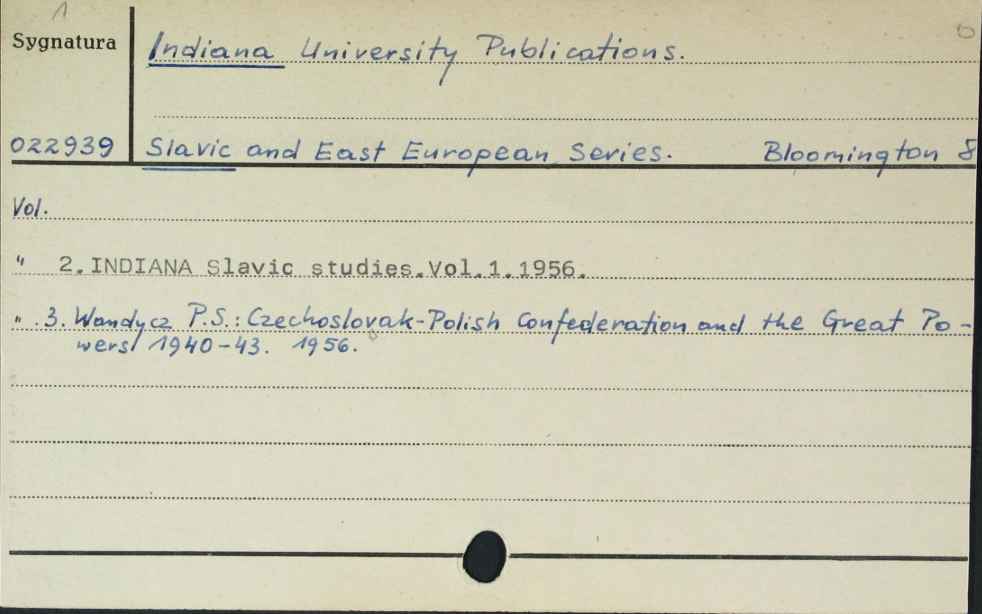 1
Sygnatura
Indiana University Publications.
022939
Slavic and East European Series. Bloomington 8
Vol.
" 2. INDIANA Slavic studies.Vol.1.1956.
" 3. Wandycz P.S.: Czechoslovak-Polish Confederation and the Great Po-
wers/ 1940-43. 1956.